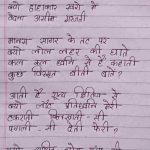 क्यों हाहाकार स्वरों में
वेदना असीम गरजती
मानस सागर के तट पर
क्यों लोल लहर की घातें
कल कल ध्वनि से हैं कहती
कुछ विस्मृत बीती बातें?
आती है शून्य क्षितिज से
क्यों लौट प्रतिध्वनि मेरी
टकराती बिलखाती-सी
पगली-सी देती फेरी?